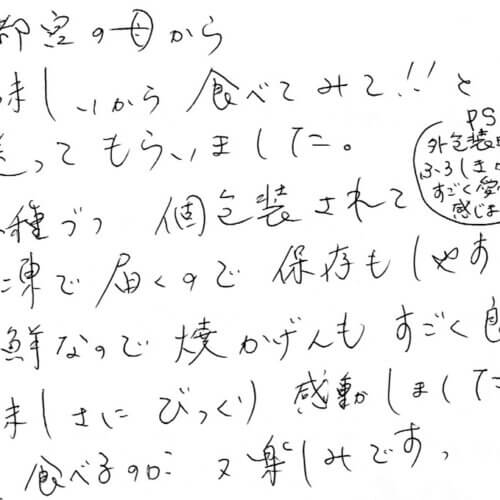 都宮の母から
味しいから 食べてみて!!と
送ってもらいました。
種づつ 個包装されて
凍で届くので 保存もしやす
鮮なので 焼かげんもすごく良
味しさにびっくり 感動しました
食べるのが 又楽しみです。
PS
外包装
ふろしき
すごく愛
感じま